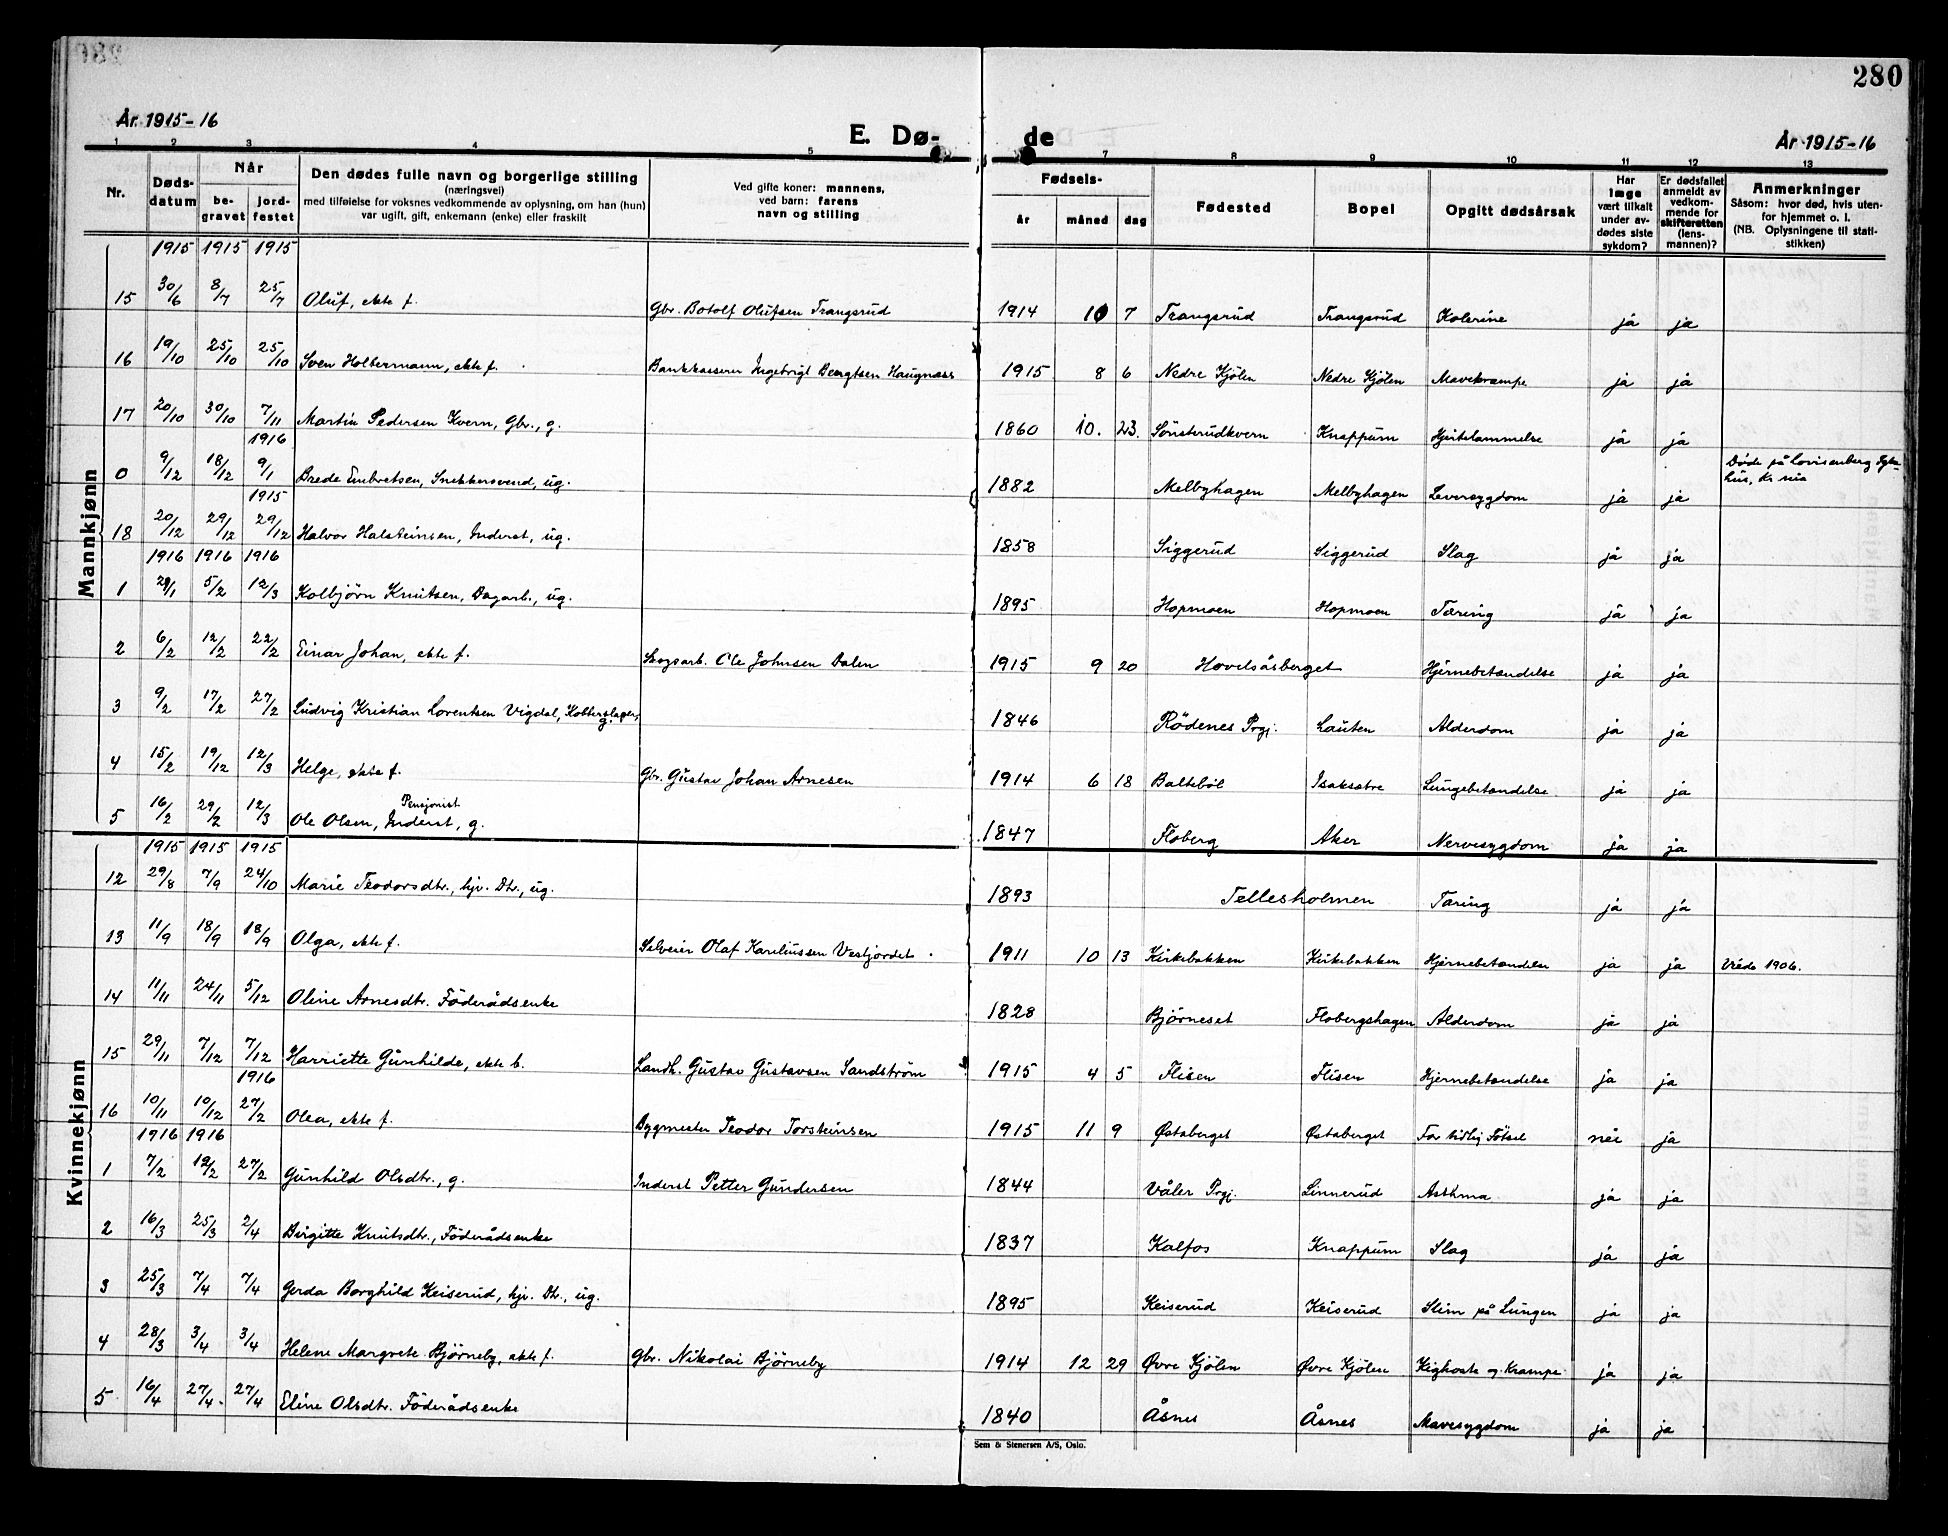 280
År 1915-16
E. Dø- de
År 1915-16
1 2 3 4 5 7 8 9 10 11 12 13
Nr. Døds-datum Når be-gravet jord-festet Den dødes fulle navn og borgerlige stilling (næringsvei) med tilføielse for voksnes vedkommende av oplysning, om han (hun) var ugift, gift, enkemann (enke) eller fraskilt Ved gifte koner: mannens, ved barn: farens navn og stilling Fødsels- år måned dag Fødested Bopel Opgitt dødsårsak Har læge vært tilkalt under av-dødes siste sykdom? Er dødsfallet anmeldt av vedkom-mende for skifteretten (lens-mannen)? Anmerkninger Såsom: hvor død, hvis uten-for hjemmet o. l. (NB. Oplysningene til stati-stikken)
Mannkjønn
1915 1915 1915
15 30/6 8/7 25/7 Oluf, ekte f. Gbr. Botolf Olufsen Trangsrud 1914 10 7 Trangsrud Trangsrud Kolerine ja ja
16 19/10 25/10 25/10 Sven Holtermann, ekte f. Bankkasserer Ingebrigt Bergtsen Haugnæss 1915 8 6 Nedre Kjölen Nedre Kjölen Mavekrampe ja ja
17 20/10 30/10 7/11 Martin Pedersen Kvern, Gbr., g. 1860 10. 23. Sönsterudkvern Knappum Hjertelammelse ja ja
1916
0 9/12 18/12 9/1 Brede Embretsen, Snekkersvend, ug. 1882 Melbyhagen Melbyhagen Leversygdom ja ja Døde på Lovisenberg Syke-hus, Kr.nia
1915
18 20/12 29/12 29/12 Halvor Halsteinsen, Inderst, ug. 1858 Siggerud Siggerud Slag ja ja
1916 1916 1916
1 29/1 5/2 12/3 Kolbjörn Knutsen, Dagarb., ug. 1895 Hopmoen Hopmoen Tæring ja ja
2 6/2 12/2 22/2 Einar Johan, ekte f. Skogsarb. Ole Johnsen Dalen 1915 9 20 Hovelsåsberget Hjernebetændelse ja ja
3 9/2 17/2 27/2 Ludvig Kristian Lorentsen Vigdal, Kobberslager, g. 1846 Rödenes Prgj. Lauten Alderdom ja ja
4 15/2 19/12 12/3 Helge, ekte f. Gbr. Gustav Johan Arnesen 1914 6 18 Baltebøl Isaksætre Lungebetændelse. ja ja
Pensjonist
5 16/2 29/2 12/3 Ole Olsen, Inderst, g. 1847 Floberg Aker Nervesygdom ja ja
Kvinnekjønn
1915 1915 1915
12 29/8 7/9 24/10 Marie Teodorsdtr., hjv. Dtr., ug. 1893 Tellesholmen Tæring ja ja
13 11/9 18/9 18/9 Olga, ekte f. Selveier Olaf Kareliussen Vestjordet. 1911 10 13 Kirkebakken Kirkebakken Hjernebetændelse ja ja
14 11/11 24/11 5/12 Oline Arnesdtr. Föderådsenke 1828 Bjørneset Flobergshagen Alderdom ja ja
15 29/11 7/12 7/12 Harriette Gunhilde, ekte b. Landh. Gustav Gustavsen Sandström 1915 4 5 Flisen Flisen Hjernebetændelse ja ja
1916
16 10/11 10/12 27/2 Olea, ekte f. Bygmester Teodor Torsteinsen 1915 11 9 Østaberget Østaberget For tidlig Fötsel nei ja
1916 1916
1 7/2 19/2 27/2 Gunhild Olsdtr., g. Inderst Petter Gundersen 1844 Våler Prgj. Linnerud Asthma ja ja
2 16/3 25/3 2/4 Birgitte Knutsdtr., Föderådsenke 1837 Kalfos Knappum Slag ja ja
3 25/3 7/4 7/4 Gerda Borghild Keiserud, hjv. Dtr., ug. 1895 Keiserud Keiserud Slim på Lungen ja ja
4 28/3 3/4 3/4 Helene Margrete Bjørneby, ekte f. Gbr. Nikolai Bjørneby 1914 12 29 Øvre Kjölen Øvre Kjölen Kighoste og Krampe ja ja
5 16/4 27/4 27/4 Eline Olsdtr. Föderådsenke 1840 Åsnes Åsnes Mavesygdom ja ja
Sem & Stenersen A/S, Oslo.